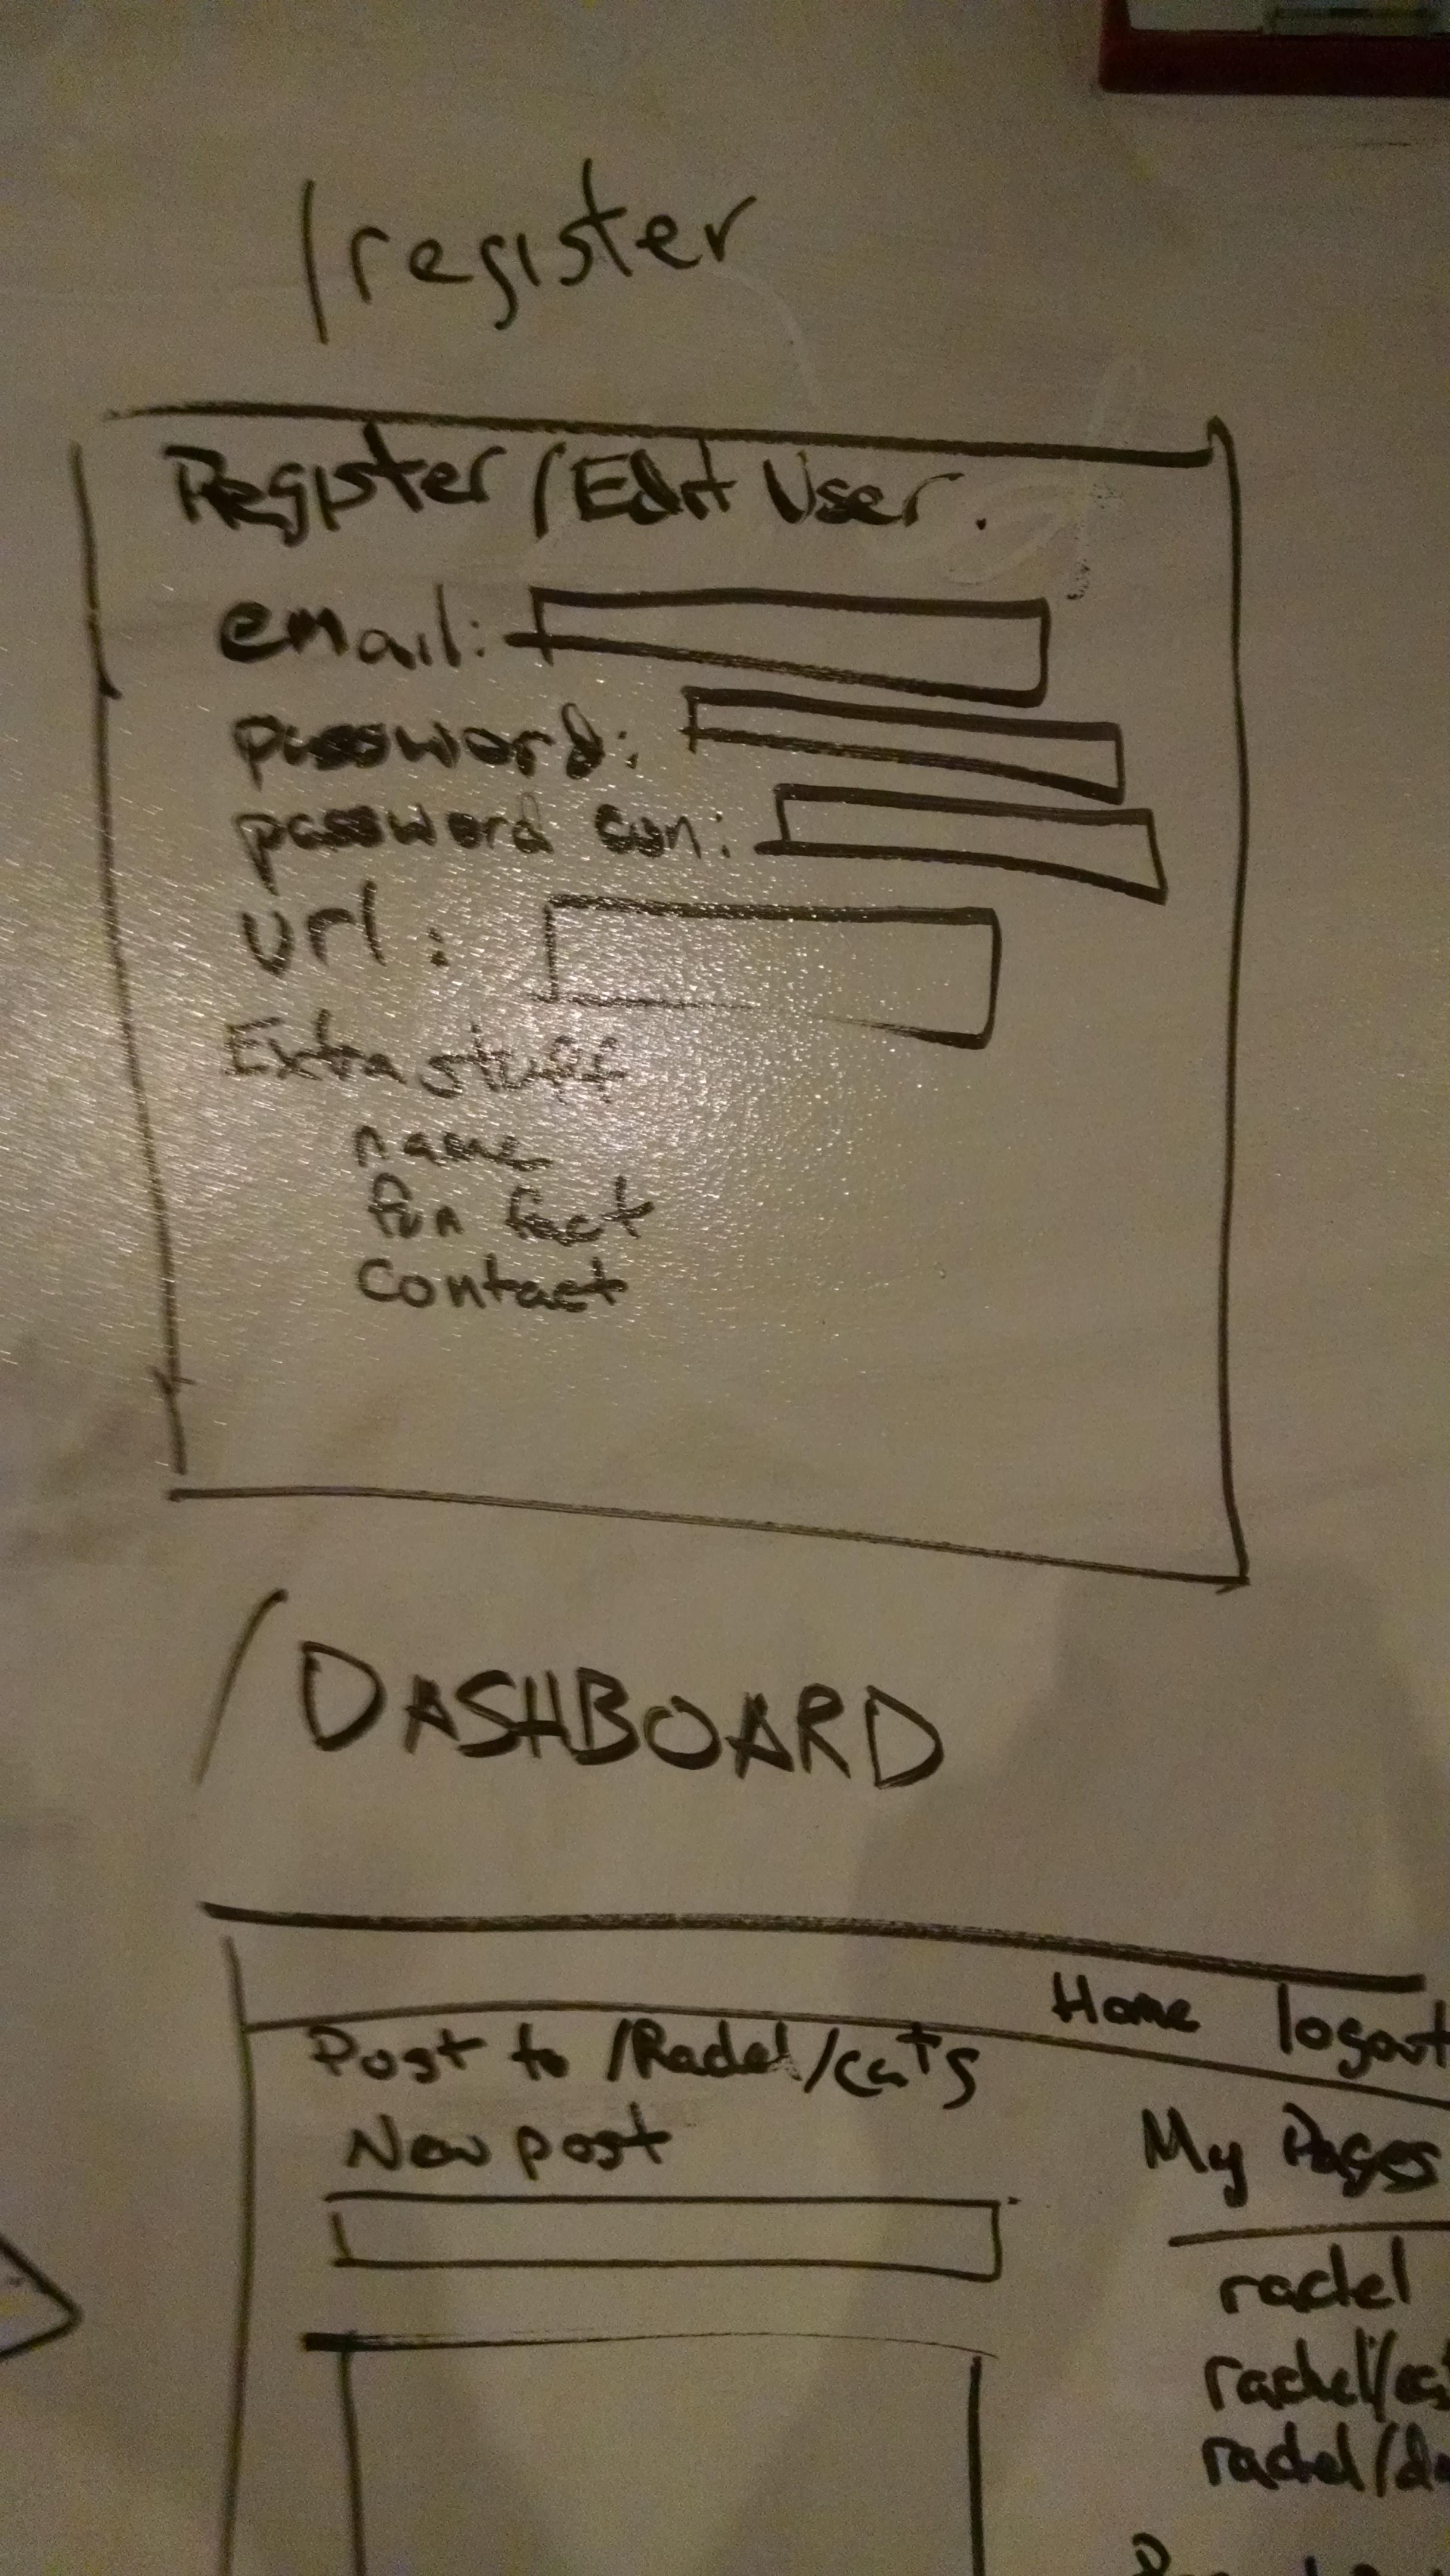 /register
Register/Edit User.
email:
password:
password con:
url:
Extra stuff
name
fun fact
Contact
/DASHBOARD
Home logout
Post to /Rachel/cats
New post
My Pages
rachel
rachel/
rachel/